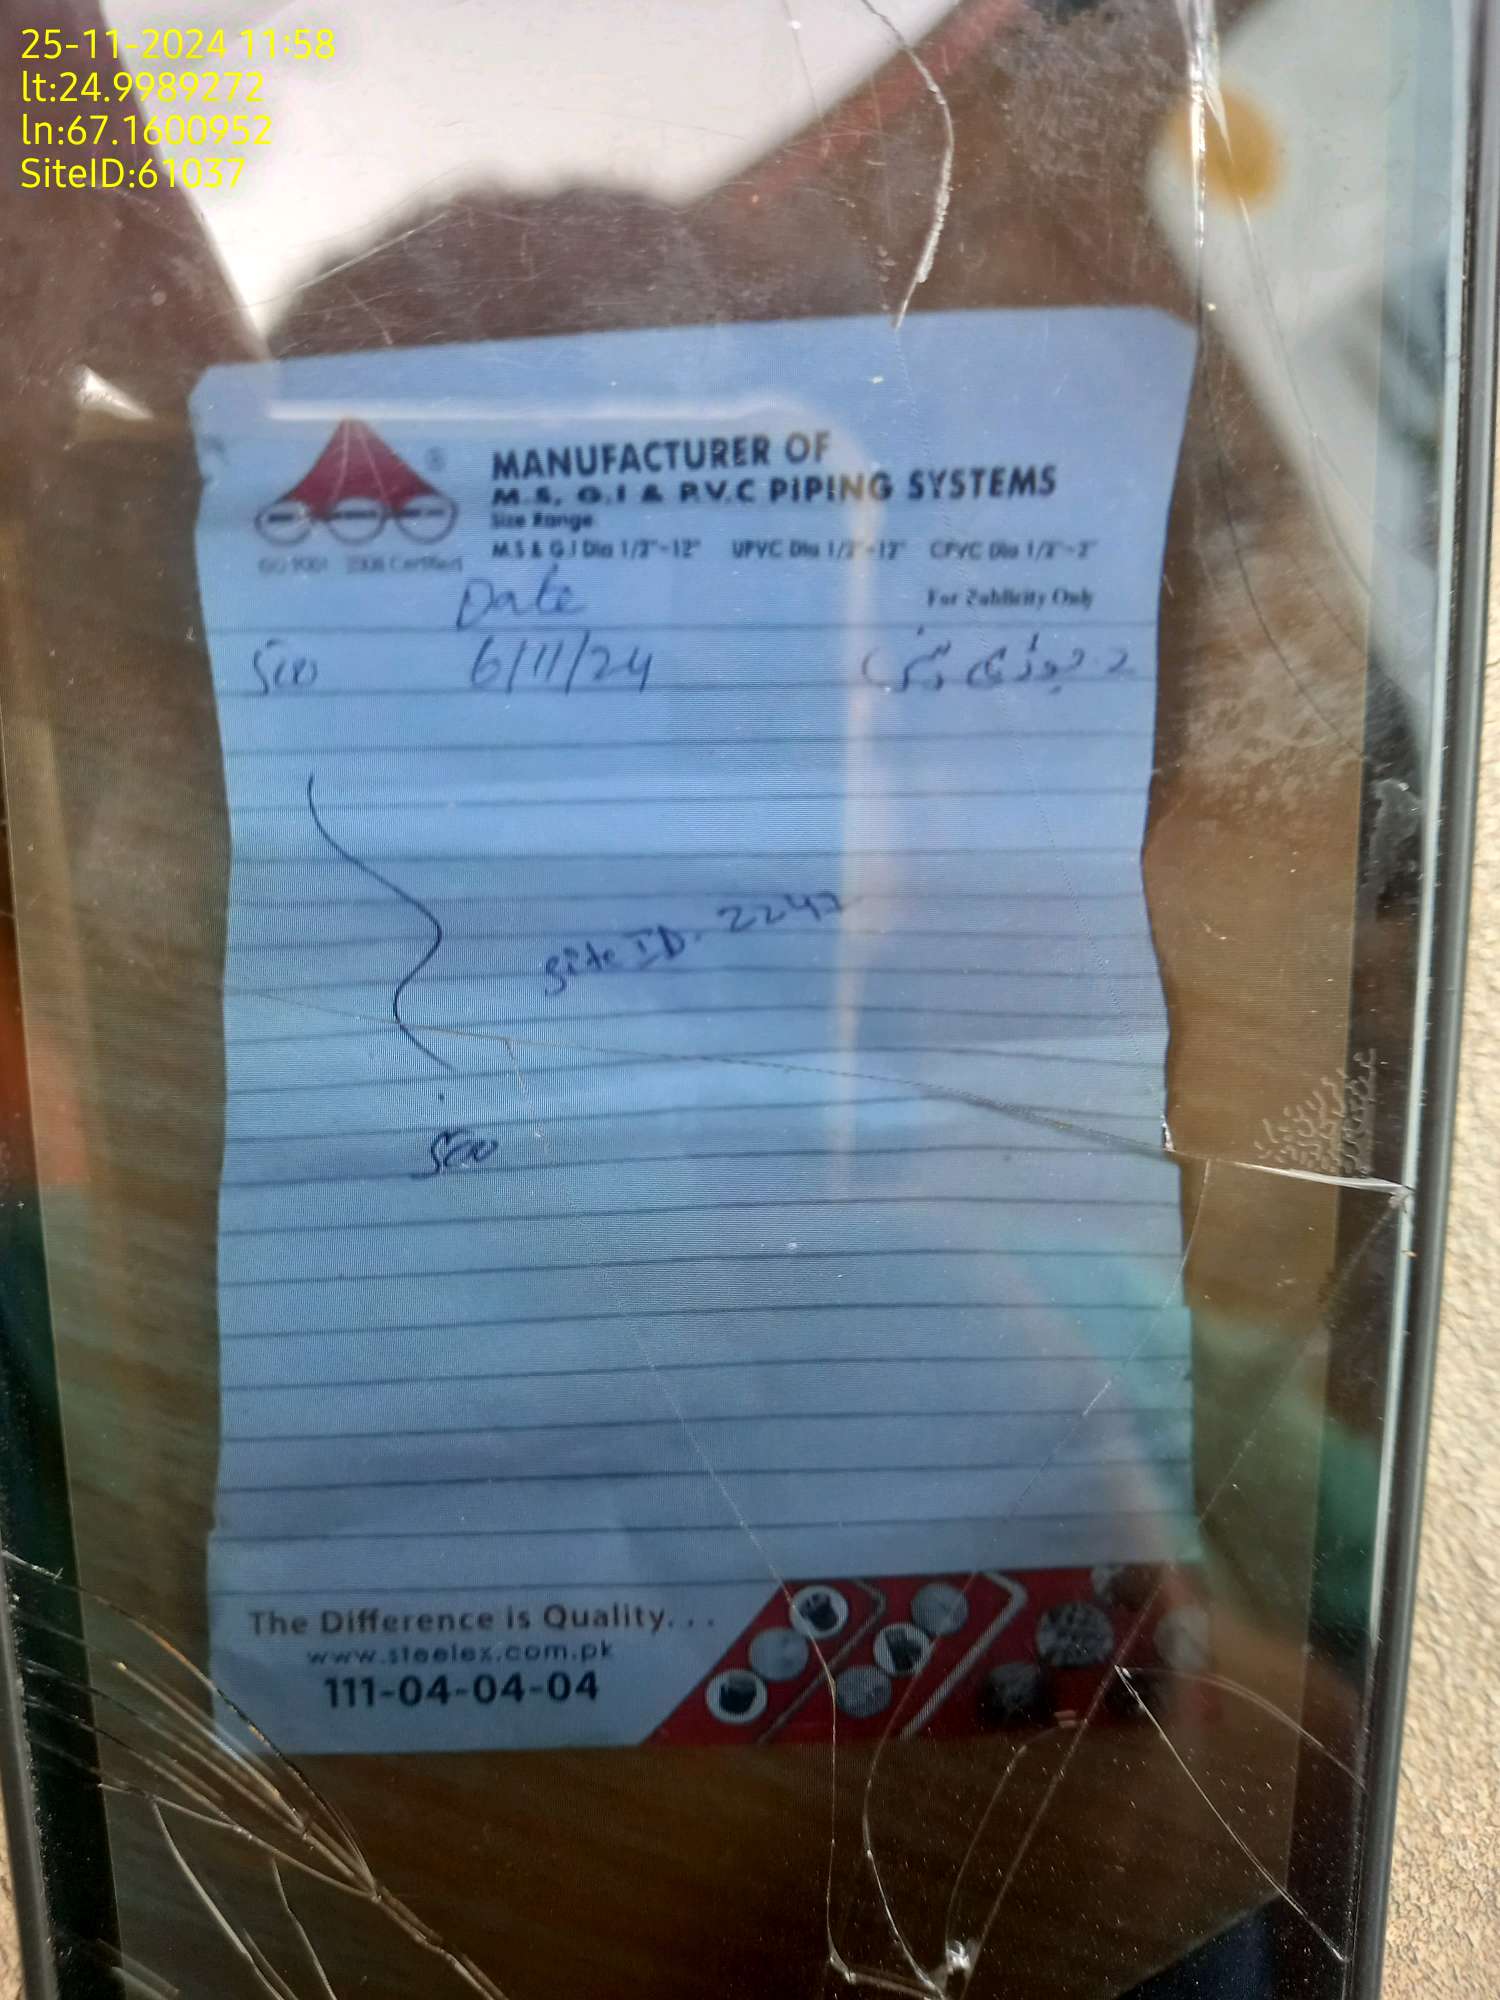 25-11-2024 11:58
lt:24.9989272
ln:67.1600952
SiteID:61037
MANUFACTURER OF
M.S, G.I & P.V.C PIPING SYSTEMS
Size Range
M.S & G.I Dia 1/2"-12" UPVC Dia 1/2"-12" CPVC Dia 1/2"-2"
For Publicity Only
Date
500 6/11/24
Site ID. 2242
500
The Difference is Quality...
www.steelex.com.pk
111-04-04-04